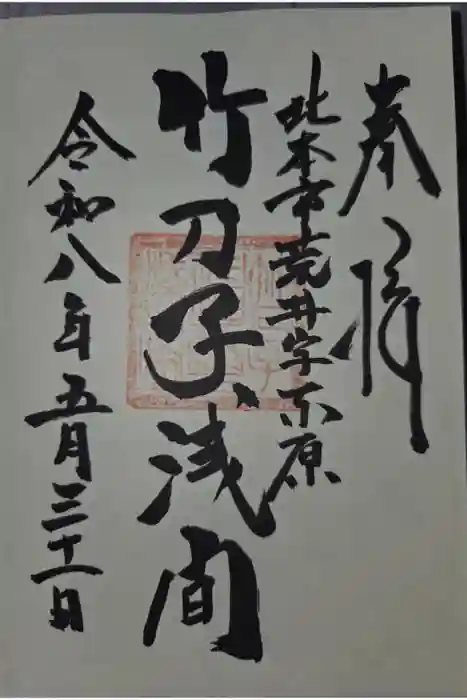 奉拝
北本市荒井字東原
竹刀子浅間
令和八年五月三十一日